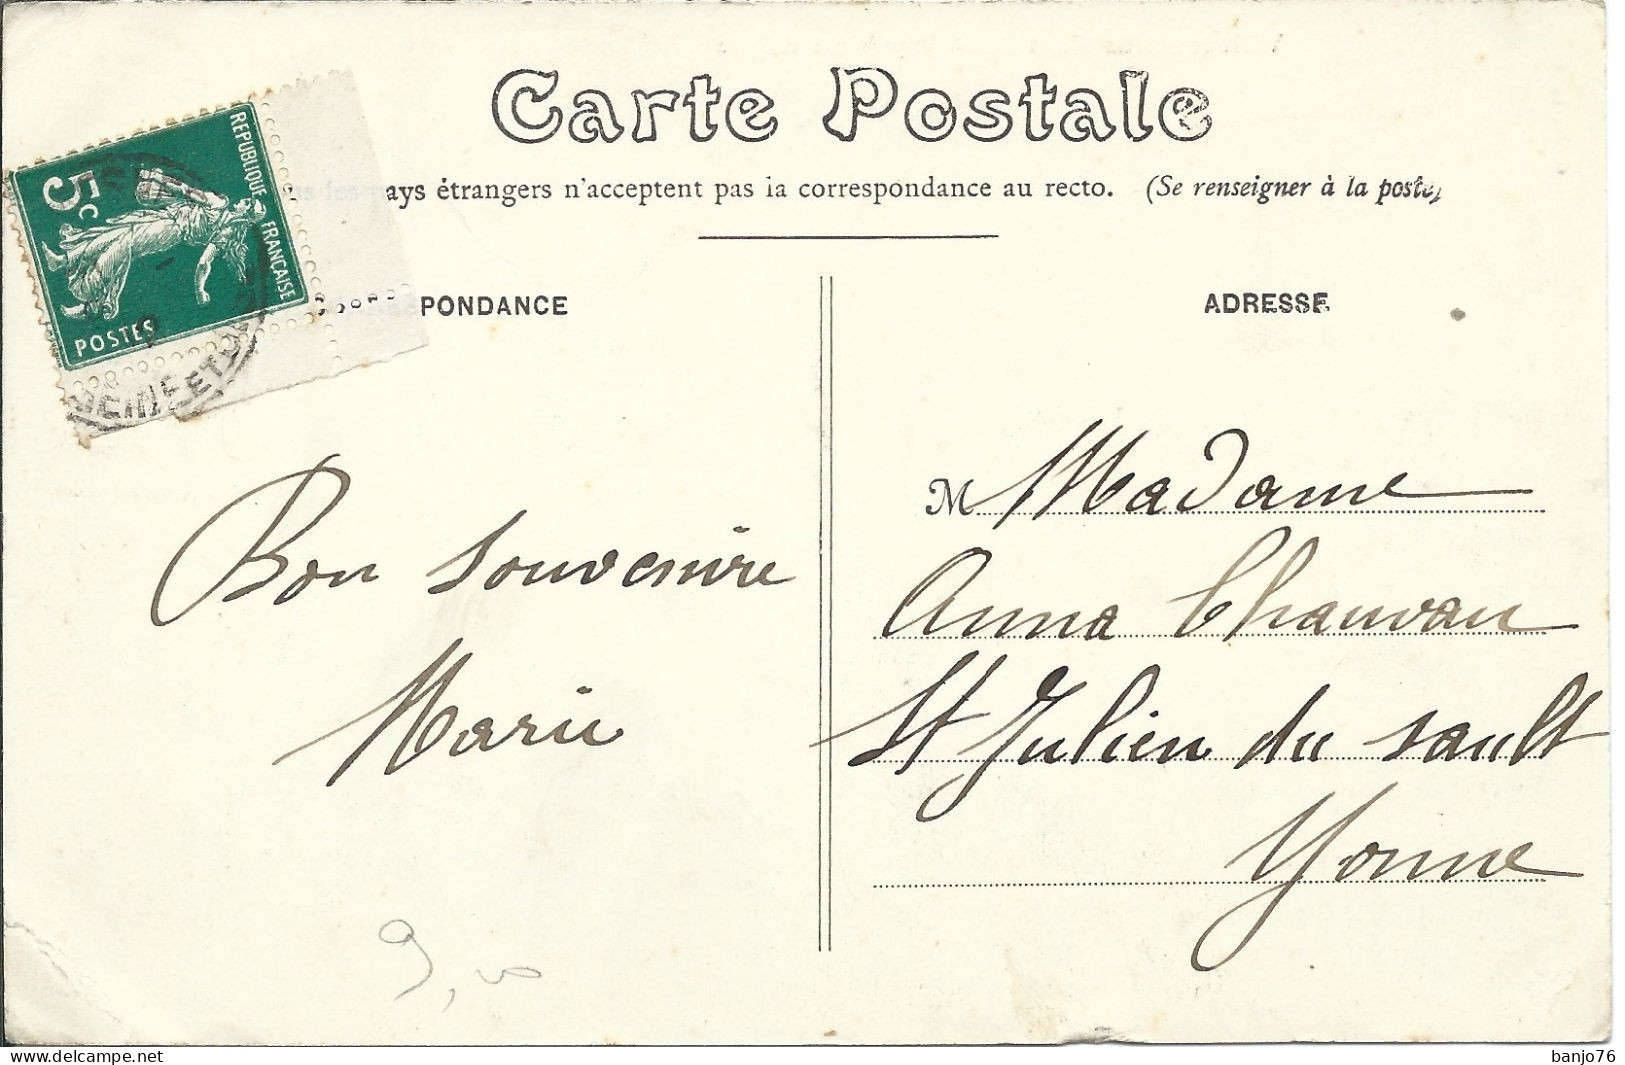 Carte Postale
pays étrangers n'acceptent pas la correspondance au recto. (Se renseigner à la poste)
REPUBLIQUE FRANÇAISE
5c
POSTES
SEINE ET
PONDANCE
ADRESSE
Bon souvenire
Marie
M Madame
Anna Chauvau
St Julien du sault
Yonne
banjo76